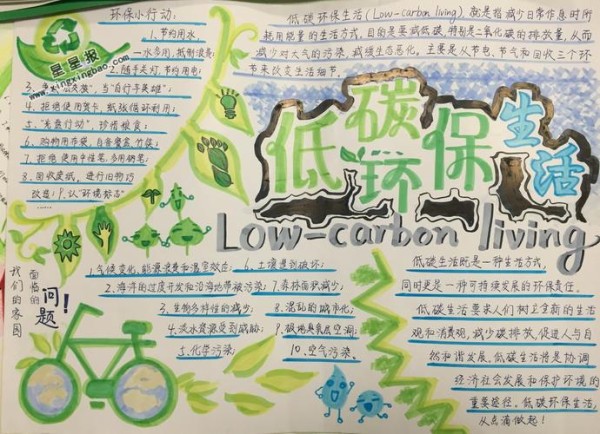 环保小行动:
1.节约用水,
一水多用,抵制浪费;
2.随手关灯,节约用电;
当"自行车英雄";
4.拒绝使用贺卡,纸张循环利用;
5."光盘行动" 珍惜粮食;
6.购物用布袋,自备餐盒、竹筷;
7.拒绝使用中性笔,多用钢笔;
8.回收废纸,进行旧物巧
改造;9.认"环境标志"
星星报
www.xingxingbao.com
低碳环保生活(Low-carbon living)就是指减少日常作息时所
耗用能量的生活方式,目的是要减低碳,特别是二氧化碳的排放量,从而
减少对大气的污染,减缓生态恶化。主要是从节电、节气和回收三个环
节来改变生活细节。
低碳环保生活
Low-carbon living
我们的家园
面临的
问题!
1.气候变化,能源浪费和温室效应;
2.海洋的过度开发和沿海地带被污染;
3.生物多样性的减少;
4.淡水资源受到威胁;
5.化学污染;
6.土壤遭到破坏;
7.森林面积减少;
8.混乱的城市化;
9.极地臭氧层空洞;
10.空气污染。
低碳生活既是一种生活方式,
同时更是一种可持续发展的环保责任。
低碳生活要求人们树立全新的生活
观和消费观,减少碳排放,促进人与自
然和谐发展。低碳生活将是协调
经济社会发展和保护环境的
重要途径。低碳环保生活,
从点滴做起!